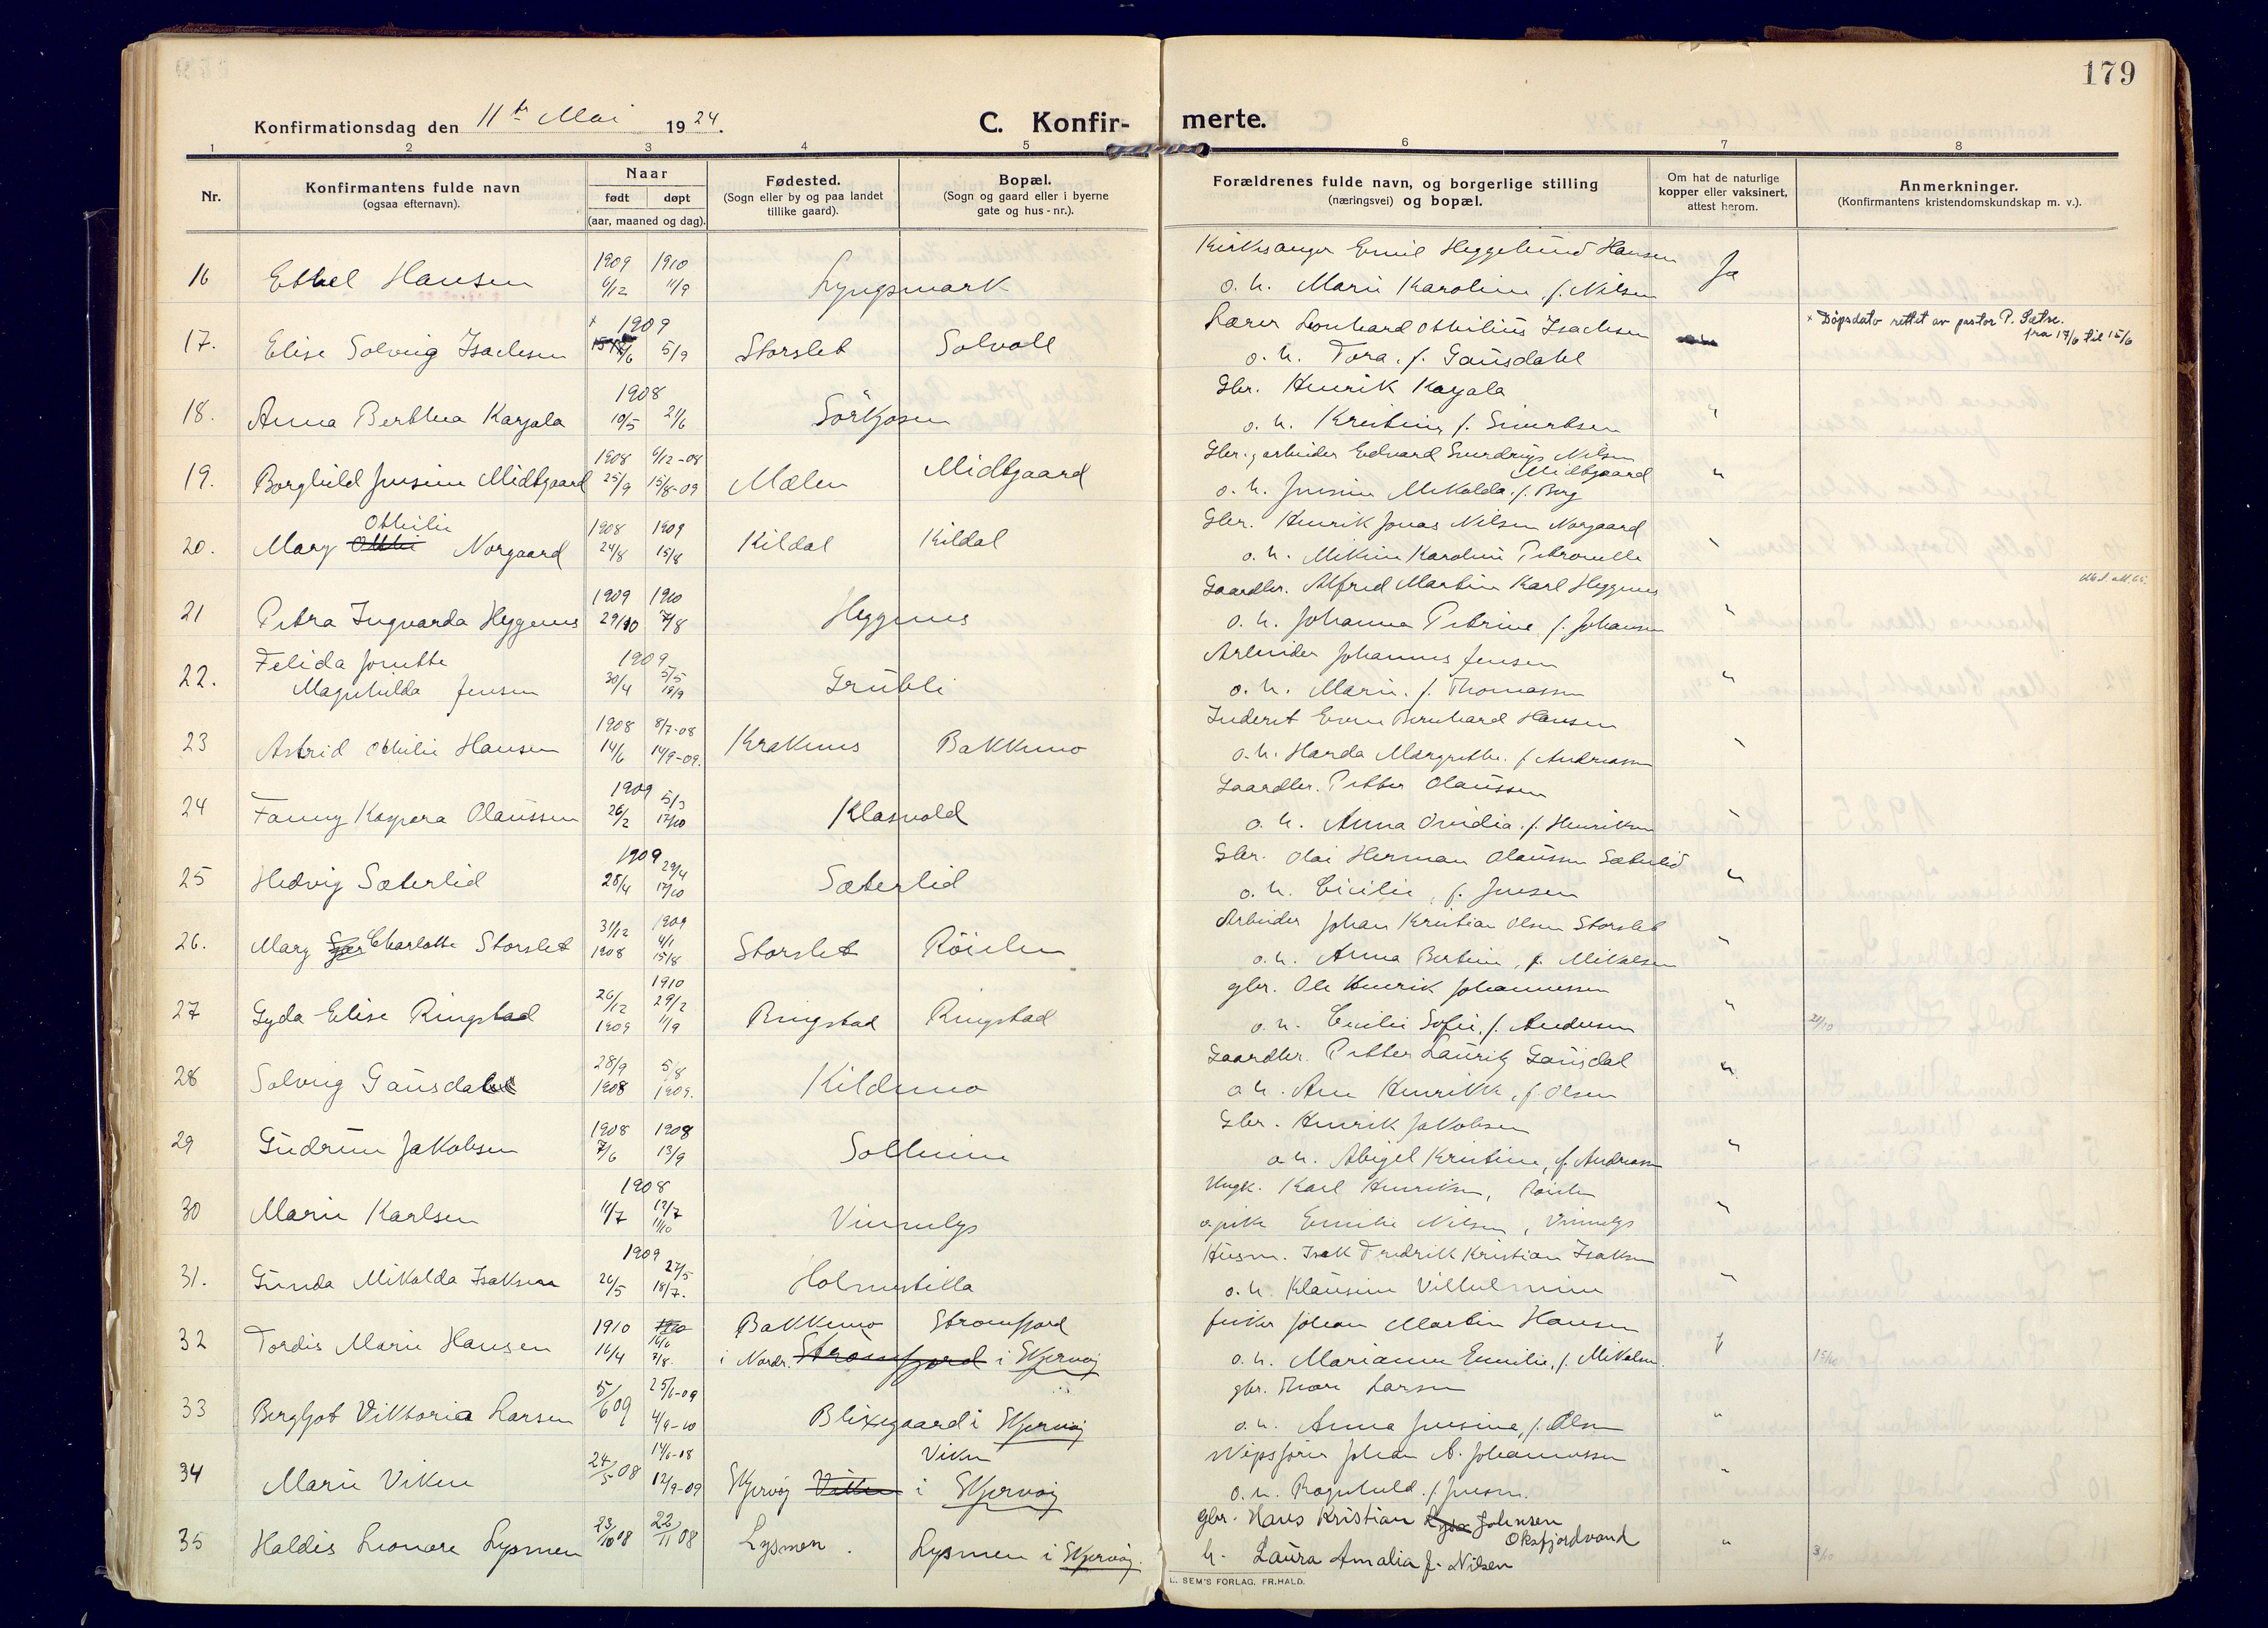 179
Konfirmationsdag den 11te Mai 1924.
C. Konfir- merte.
1 2 3 4 5 6 7 8
Nr.
Konfirmantens fulde navn
(ogsaa efternavn).
Naar
født døpt
(aar, maaned og dag).
Fødested.
(Sogn eller by og paa landet
tillike gaard).
Bopæl.
(Sogn og gaard eller i byerne
gate og hus-nr.).
Forældrenes fulde navn, og borgerlige stilling
(næringsvei) og bopæl.
Om hat de naturlige
kopper eller vaksinert,
attest herom.
Anmerkninger.
(Konfirmantens kristendomskundskap m. v.).
16 Ethel Hansen 1909 6/12 1910 11/9 Lyngsmark
Kirkesanger Emil Heggelund Hansen
o. h. Marie Karoline f. Nilsen
Ja
17. Elise Solveig Isachsen 1909 5/9 Storslet Solvoll
Lærer Leonhard Othilius Isachsen
o. h. Tora f. Gausdahl
x Dåpsdato rettet av pastor P. Sætre.
fra 17/6 til 15/6
18. Anna Berthea Karjala 1908 10/5 21/6 Sörkjosen
Gbr. Henrik Karjala
o. h. Kristine f. Sivertsen
"
19. Borghild Jensine Midtgaard 1908 25/9 6/12-08 15/8-09 Mælen Midtgaard
Gbr. arbeider Edvard Sverdrup Nilsen
Midtgaard
o. h. Jensine Mikalda f. Berg
"
20. Mary Othilie Norgaard 1908 24/8 1909 15/8 Kildal Kildal
Gbr. Henrik Jonas Nilsen Norgaard
o. h. Mikine Karoline Petronelle
"
21 Petra Ingvarda Heggenes 1909 29/10 1910 7/8 Heggenes
Gaardbr. Alfred Martin Karl Heggenes
o. h. Johanna Petrine f. Johansen
"
22. Felida Jonette
Magnhilda Jensen 1909 30/4 31/5 19/9 Grubli
Arbeider Johannes Jensen
o. h. Marie f. Thomassen
"
23 Astrid Othilie Hansen 1908 14/6 8/7-08 14/9-09. Krakenes Bakkemo
Inderst Even Bernhard Hansen
o. h. Harda Margrethe f. Andreassen
"
24 Fanny Kaspara Olaussen 1909 26/2 5/3 17/10 Klasvold
Gaardbr. Petter Olaussen
o. h. Anna Ovidia f. Henriksen
"
25 Hedvig Sæterlid 1909 28/4 29/4 17/10 Sæterlid
Gbr. Olai Herman Olaussen Sæterlid
o. h. Cicilie, f. Jensen
"
26. Mary Charlotte Storslet 31/12 1908 1909 4/1 15/8 Storslet Röielen
Arbeider Johan Kristian Olsen Storslet
o. h. Anna Bertine, f. Mikalsen
"
27 Gyda Elise Ringstad 26/12 1909 1910 29/2 11/9 Ringstad Ringstad
gbr. Ole Henrik Johannessen
o. h. Cecilie Sofie, f. Andersen
"
21/10
28 Solveig Gausdal 28/9 1908 5/8 1909. Kildemo
Gaardbr. Petter Lauritz Gausdal
o. h. Ane Henrikke, f. Olsen
"
29 Gudrun Jakobsen 1908 7/6 1908 13/9 Solheim
Gbr. Henrik Jakobsen
o. h. Abigel Kristine, f. Andreassen
"
30 Marie Karlsen 1908 11/7 19/7 11/10 Vinnelys
Ungk. Karl Henriksen, Röielen
o. pike Emilie Nilsen, Vinnelys
"
31. Gunda Mikalda Isaksen 1909 26/5 27/5 18/7. Holmestilla
Husm. Isak Fredrik Kristian Isaksen
o. h. Klausine Vilhelmine
"
32 Tordis Marie Hansen 1910 16/4 16/6 7/8. Bakkemo Stromfjord
i Nordr. Strömfjord i Skjervöj
fisker Johan Martin Hansen
o. h. Marianne Emilie, f. Mikalsen.
"
15/10
33 Bergljot Viktoria Larsen 5/6 09 25/6-09 4/9-10 Blixgaard i Skjervöj
gbr. Thore Larsen
o. h. Anna Jensine, f. Olsen
"
34 Marie Viken 24/5 08 14/6-08 12/9-09 Skjervöj Viken i Skjervöj
Viken
Johan A. Johannessen
o. h. Ragnhild f. Jensen.
"
35 Haldis Leonore Lysmen 23/10 08 22/11 08 Lysmen. Lysmen i Skjervöj.
gbr. Hans Kristian Johnsen
Oksfjordvand
h. Laura Amalia f. Nilsen
"
3/10
L. SEM'S FORLAG, FR.HALD.